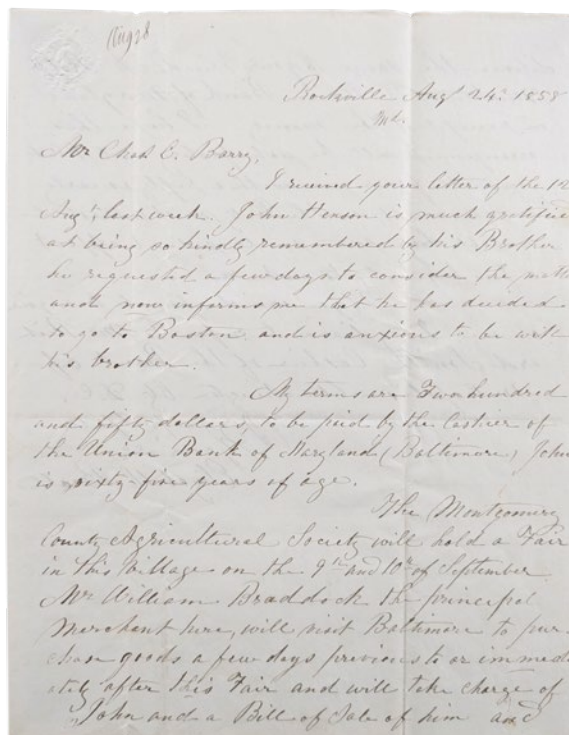 Aug 28
Rockville Aug 24. 1858
Md.
Mr Chas C. Barry,
I received your letter of the 12
Aug, last week. John Henson is much gratified
at being so kindly remembered by his Brother
he requested a few days to consider the matt
and now informs me that he has decided
to go to Boston and is anxious to be with
his brother.
My terms are Two hundred
and fifty dollars, to be paid by the Cashier of
the Union Bank of Maryland (Baltimore) John
is sixty-five years of age.
The Montgomery
County Agricultural Society will hold a Fair
in this Village on the 9th and 10th of September
Mr William Braddock the principal
Merchant here, will visit Baltimore to pur-
chase goods a few days previous to or immedi
ately after this Fair and will take charge of
John and a Bill of Sale of him and